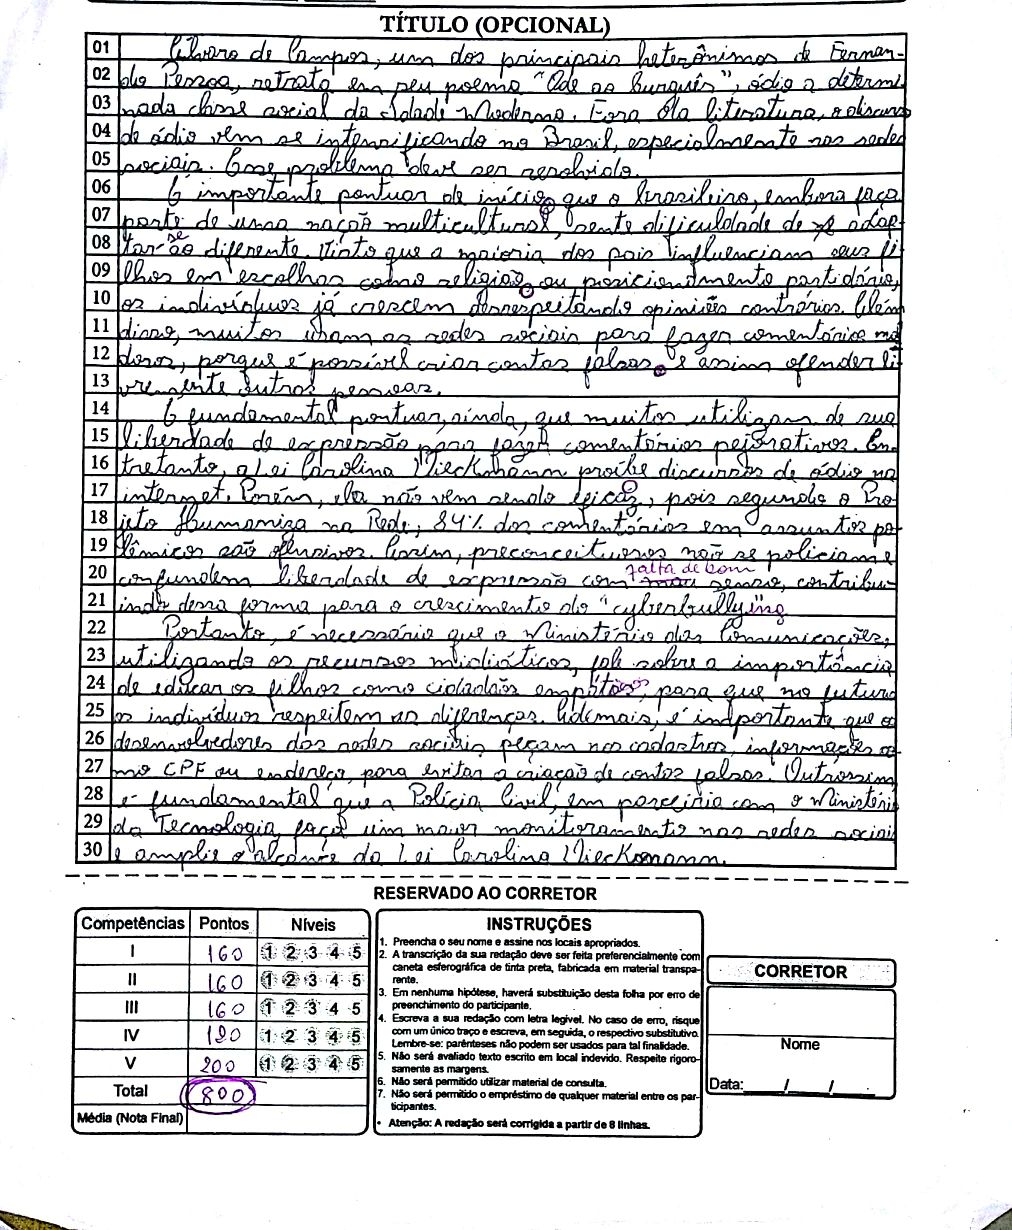 TÍTULO (OPCIONAL)
01 Álvaro de Campos, um dos principais heterônimos de Fernan-
02 do Pessoa, retrata em seu poema "Ode ao burguês", ódio a determi
03 nada classe social da Idade Moderna. Fora da literatura, o discurso
04 de ódio vem se intensificando no Brasil, especialmente nas redes
05 sociais. Esse problema deve ser resolvido.
06 É importante pontuar de início que o brasileiro, embora faça
07 parte de uma nação multicultural, sente dificuldade de adap-
08 tar-se ao diferente. Visto que a maioria dos pais influenciam seus fi
09 lhos em escolhas como religião ou posicionamento partidário,
10 os indivíduos já crescem desrespeitando opiniões contrárias. Além
11 disso, muitos usam as redes sociais para fazer comentários mal
12 dosos, porque é possível criar contas falsas e assim ofender li
13 vremente outras pessoas.
14 É fundamental pontuar, ainda, que muitos utilizam de sua
15 liberdade de expressão para fazer comentários pejorativos. En-
16 tretanto, a Lei Carolina Dieckmann proíbe discursos de ódio na
17 internet. Porém, ela não vem sendo eficaz, pois segundo o Pro-
18 jeto Humaniza na Rede, 84% dos comentários em assuntos po-
19 lêmicos são ofensivos. Assim, preconceituosos não se policiam e
falta de bom
20 confundem liberdade de expressão com mau senso, contribu-
21 indo dessa forma para o crescimento do "cyberbullying
22 Portanto, é necessário que o Ministério das Comunicações,
23 utilizando os recursos midiáticos, fale sobre a importância
24 de educar os filhos como cidadãos empáticos, para que no futuro
25 os indivíduos respeitem as diferenças. Ademais, é indportante que os
26 desenvolvedores das redes sociais peçam nos cadastros, informações co
27 mo CPF ou endereço, para evitar a criação de contas falsas. Outrossim
28 é fundamental que a Polícia Civil, em parceiria com o Ministério
29 da Tecnologia, faça um maior monitoramento nas redes sociais
30 e amplie o alcance da Lei Carolina Dieckmann.
RESERVADO AO CORRETOR
Competências Pontos Níveis
I 160 1 2 3 4 5
II 160 1 2 3 4 5
III 160 1 2 3 4 5
IV 120 1 2 3 4 5
V 200 1 2 3 4 5
Total 800
Média (Nota Final)
INSTRUÇÕES
1. Preencha o seu nome e assine nos locais apropriados.
2. A transcrição da sua redação deve ser feita preferencialmente com
caneta esferográfica de tinta preta, fabricada em material transpa-
rente.
3. Em nenhuma hipótese, haverá substituição desta folha por erro de
preenchimento do participante.
4. Escreva a sua redação com letra legível. No caso de erro, risque
com um único traço e escreva, em seguida, o respectivo substitutivo.
Lembre-se: parênteses não podem ser usados para tal finalidade.
5. Não será avaliado texto escrito em local indevido. Respeite rigoro-
samente as margens.
6. Não será permitido utilizar material de consulta.
7. Não será permitido o empréstimo de qualquer material entre os par-
ticipantes.
• Atenção: A redação será corrigida a partir de 8 linhas.
CORRETOR
Nome
Data: / /